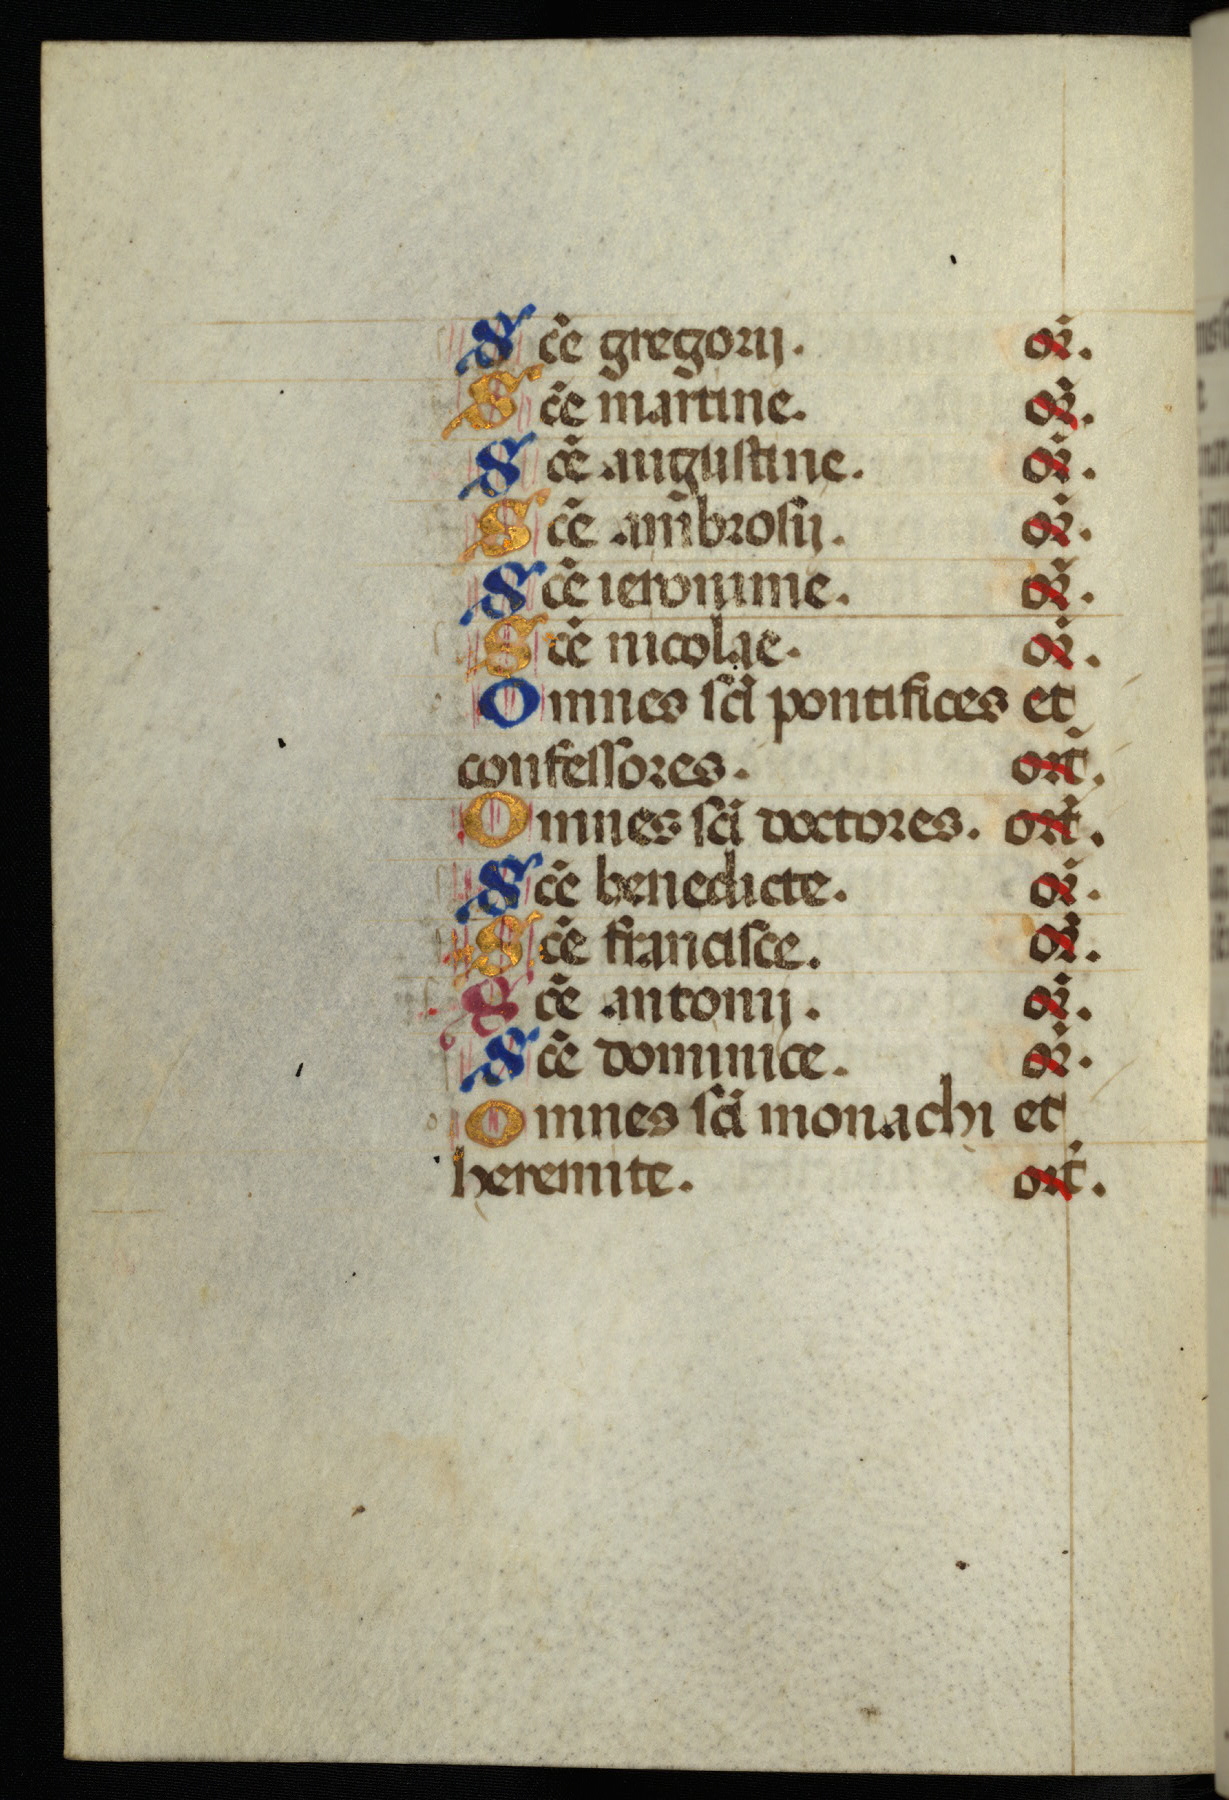 Sc̄e gregorij. or̄.
Sc̄e martine. or̄.
Sc̄e augustine. or̄.
Sc̄e ambrosij. or̄.
Sc̄e ieronime. or̄.
Sc̄e nicolae. or̄.
Omnes sc̄i pontifices et
confessores. orī.
Omnes sc̄i doctores. orī.
Sc̄e benedicte. or̄.
Sc̄e francisce. or̄.
Sc̄e antonij. or̄.
Sc̄e dominice. or̄.
Omnes sc̄i monachi et
heremite. orī.